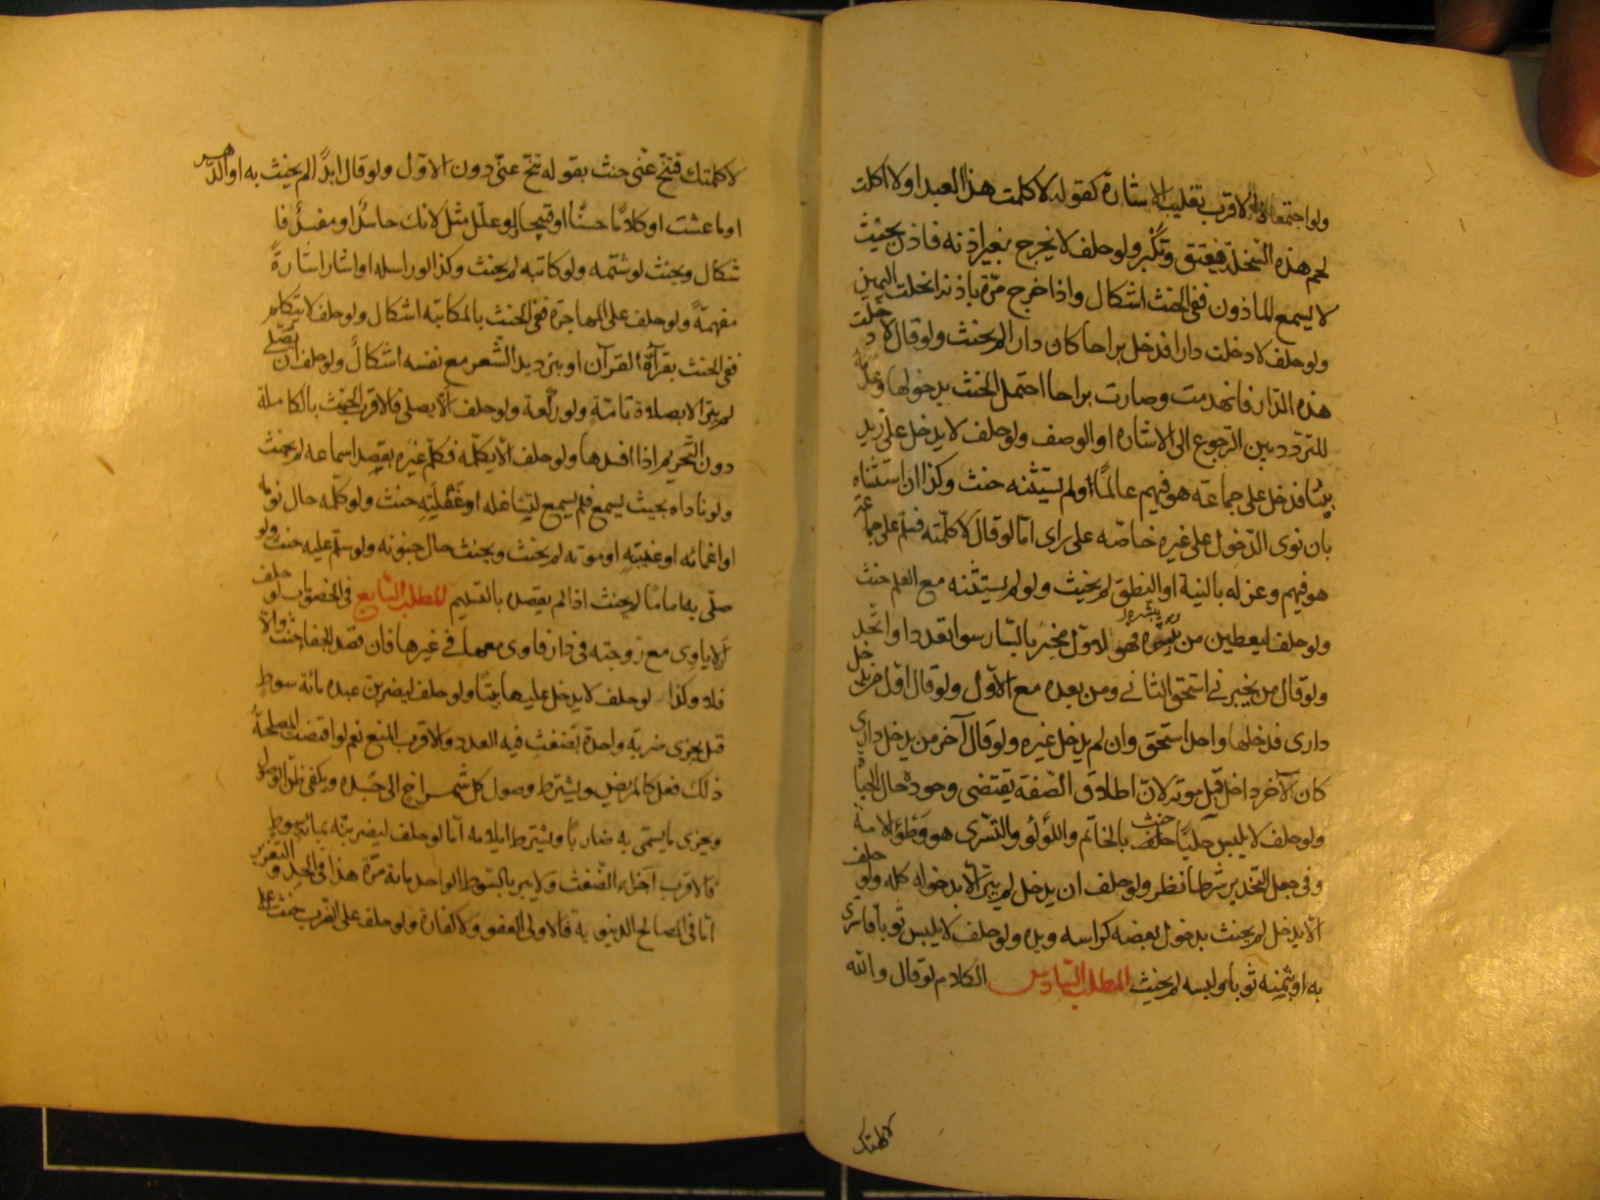 ولو اجتمعا فالاقرب تغليب الاشارة كقوله لا كلمت هذا العبد اولا اكلت
لحم هذه السخلة فيعتق وتكبر ولو حلف لا يخرج بغير اذنه فاذن بحيث
لا يسمع الماذون ففى الحنث اشكال واذا خرج مرة باذنه انحلت اليمين
ولو حلف لا دخلت دارا فدخل براحا كان دارا لم يحنث ولو قال لا دخلت
هذه الدار فانهدمت وصارت براحا احتمل الحنث بدخولها وعدمه
للتردد بين الرجوع الى الاشارة او الوصف ولو حلف لا يدخل على زيد
بيتا فدخل على جماعة هو فيهم عالما اولم يستثنه حنث وكذا ان استثناه
بان نوى الدخول على غيره خاصة على راى اما لو قال لا كلمته فسلم على جماعة
هو فيهم وعزله بالنية او النطق لم يحنث ولو لم يستثنه مع العلم حنث
ولو حلف ليعطين من يبشره فهو لاول مخبر بالسار سوا تعدد او اتحد
ولو قال من يخبرنى استحق الثانى ومن بعده مع الاول ولو قال اول من يدخل
دارى فدخلها واحد استحق وان لم يدخل غيره ولو قال آخر من يدخل دارى
كان الآخر داخل قبل موته لان اطلاق الصفة يقتضى وجوده حال الحياة
ولو حلف لا يلبس حليا حنث بالخاتم واللؤلؤ والتسرى هو وطؤ الامة
وفى جعل التخدير شرطا نظر ولو حلف ان يدخل لم يبر الا بدخوله كله ولو حلف
الا يدخل لم يحنث بدخول بعضه كراسه ويده ولو حلف لا يلبس ثوبا فاشترى
به او بثمنه ثوبا ولبسه لم يحنث المطلب السادس الكلام لو قال والله
لا كلمتك
لا كلمتك فتنح عنى حنث بقوله تنح عنى دون الاول ولو قال ابدا لم يحنث به او الدهر
او ما عشت او كلاما حسنا او قبيحا ولو علل مثل لانك حاسد او مفسد فا
شكال ويحنث لو شتمه ولو كاتبه لم يحنث وكذا لو راسله او اشار اشارة
مفهمة ولو حلف على المهاجرة ففى الحنث بالمكاتبة اشكال ولو حلف لا يتكلم
ففى الحنث بقرآة القرآن او بترديد الشعر مع نفسه اشكال ولو حلف ان يصلى
لم يبر الا بصلاة تامة ولو ركعة ولو حلف الا يصلى فالاقرب الحنث بالكاملة
دون التحريم اذا افسدها ولو حلف الا يكلمه فكلم غيره بقصد اسماعه لم يحنث
ولو ناداه بحيث يسمع فلم يسمع لتشاغله او غفلته حنث ولو كلمه حال نومه
او اغمائه او غيبته او موته لم يحنث ويحنث حال جنونه ولو سلم عليه حنث ولو
صلى به اماما لم يحنث اذا لم يقصده بالتسليم المطلب السابع فى الخصومات لو حلف
الا ياوى مع زوجته فى دار فاوى معها فى غيرها فان قصد الجفا حنث والا
فلا وكذا لو حلف لا يدخل عليها بيتا ولو حلف ليضربن عبده مائة سوط
قيل يجزى ضربة واحدة بضغث فيه العدد والاقرب المنع نعم لو اقتضت المصلحة
ذلك فعل كالمريض ويشترط وصول كل شمراخ الى جسده ويكفى ظن الوصول
ويجزى ما يسمى به ضاربا ويشترط ايلامه اما لو حلف ليضربنه بمائة سوط
فالاقرب اجزاء الضغث ولا يبر بالسوط الواحد مائة مرة هذا فى الحد والتعزير
اما فى المصالح الدنيوية فالاولى العفو ولا كفارة ولو حلف على الضرب حنث